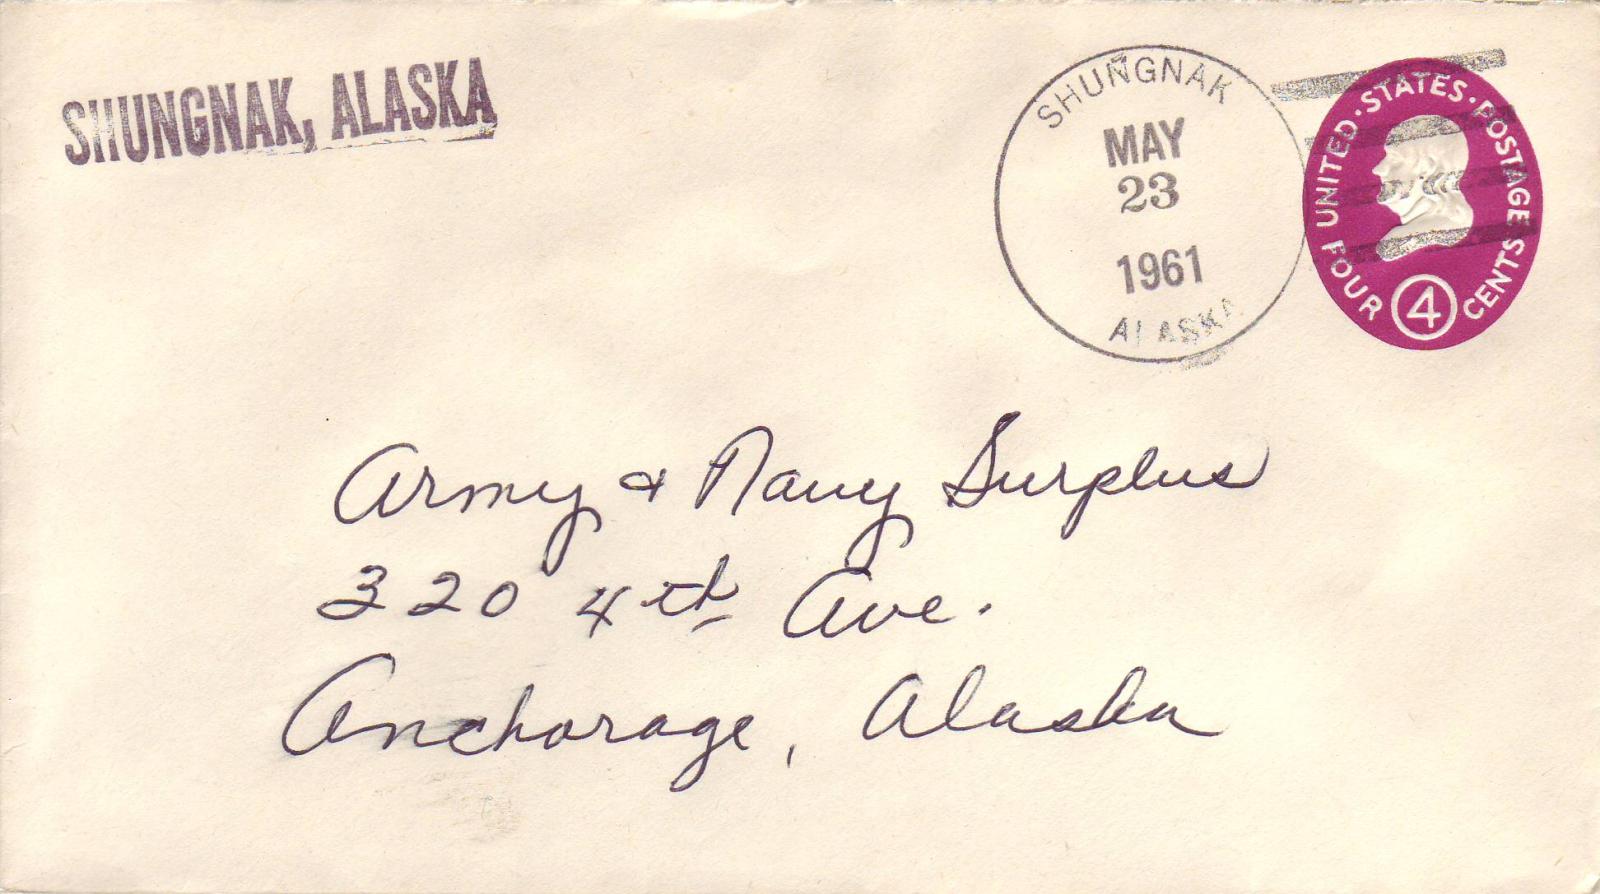 SHUNGNAK, ALASKA
SHUNGNAK
MAY
23
1961
ALASKA
UNITED·STATES·POSTAGE
FOUR 4 CENTS
Army & Navy Surplus
320 4th Ave.
Anchorage, Alaska